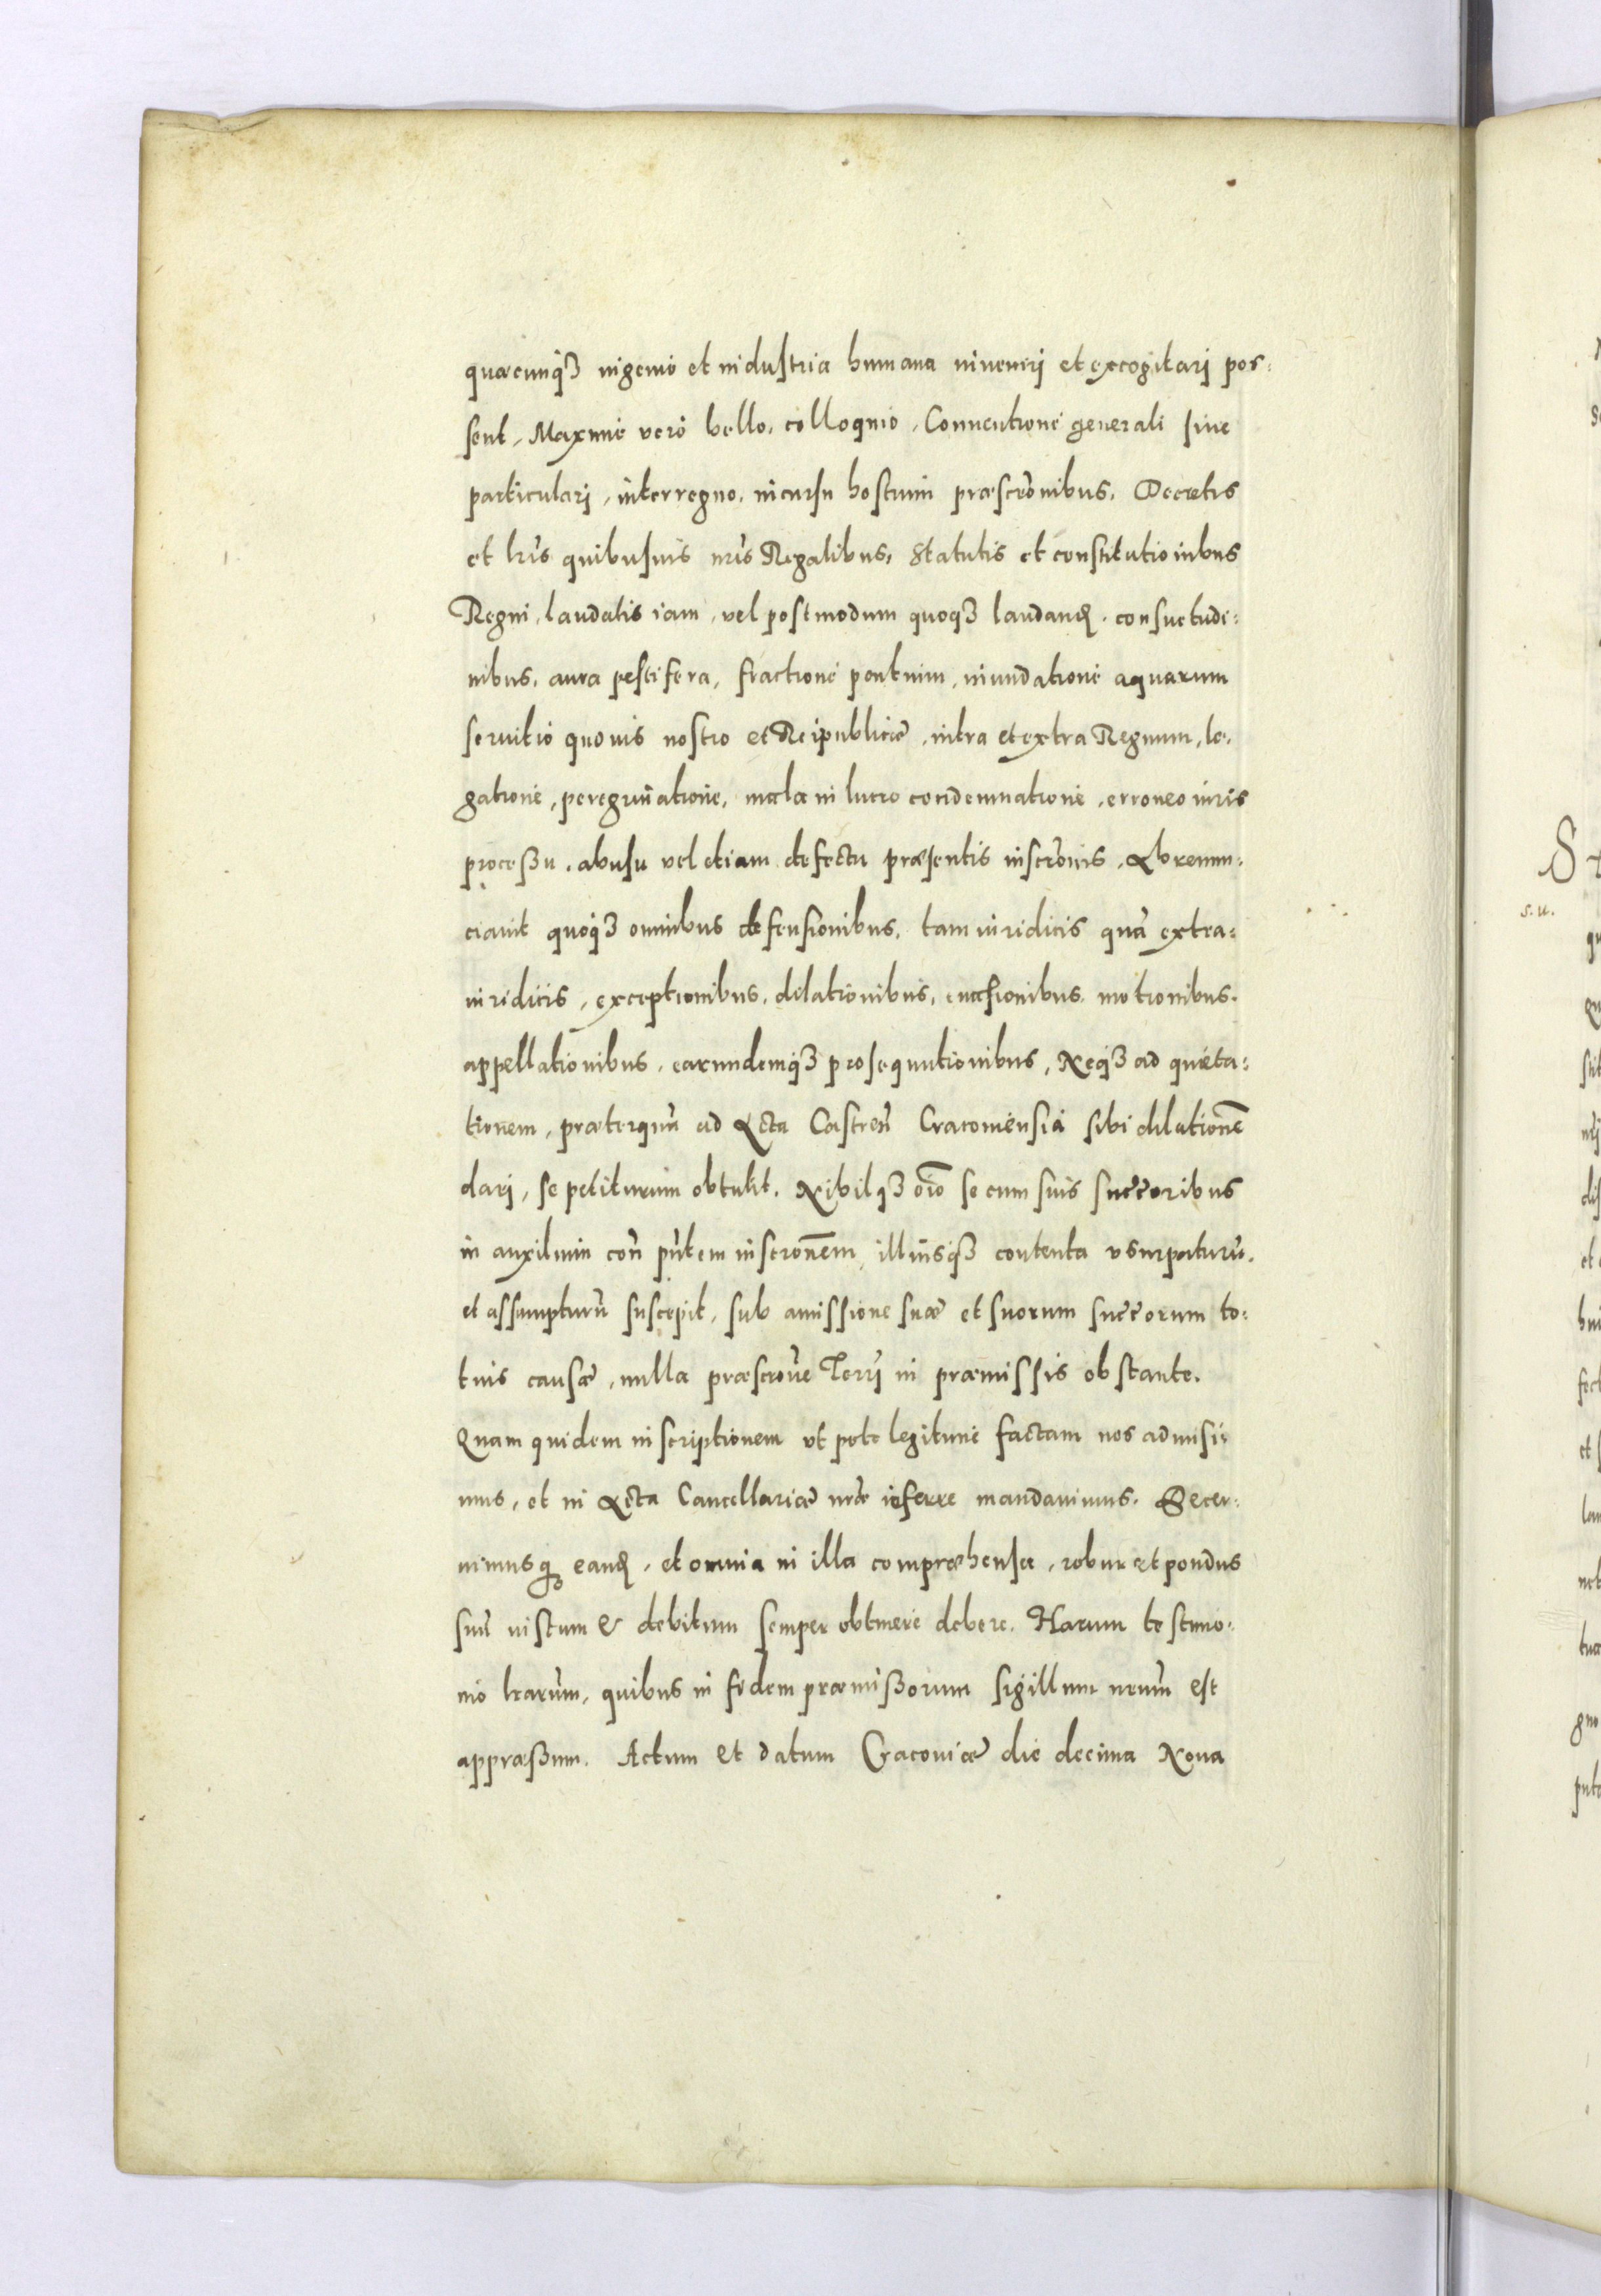 quæcunq3 ingenio et industria humana inueniri et excogitari pos:
sent, Maxime vero bello, colloquio, Conuentione generali siue
particulari, interregno, incursu hostium præscrõnibus, Decretis
et lr̃is quibusuis nr̃is Regalibus, Statutis et constitutionibus
Regni, laudatis iam, vel postmodum quoq3 laudand, consuetudi:
nibus, aura pestifera, fractione pontium, inundatione aquarum
seruitio quouis nostro et Reipublicæ, intra et extra Regnum, le:
gatione, peregrinatione, mala in lucro condemnatione, erroneo iuris
processu, abusu vel etiam defectu præsentis inscrõnis. Abrenun:
ciauit quoq3 omnibus defensionibus, tam iuridicis quã extra:
iuridicis, exceptionibus, dilationibus, euasionibus, motionibus,
appellationibus, earundemq3 prosequutionibus, Neq3 ad quieta:
tionem, præterquã ad Acta Castreñ Cracouiensia sibi dilationẽ
dari, se petiturum obtulit. Nihilq3 oĩo se cum suis succõribus
in auxilium coñ pñtem inscrõnem, illiusq3 contenta vsurpaturũ,
et assumpturũ suscepit, sub amissione suæ et suorum succõrum to:
tius causæ, nulla præscrõne Terr̃ in præmissis obstante.
Quam quidem inscriptionem vt pote legitime factam nos admisi:
mus, et in Acta Cancellariæ nr̃æ inferre mandauimus. Decer:
nimusq3 eand, et omnia in illa compræhensa, robur et pondus
suũ iustum & debitum semper obtinere debere. Harum testimo:
nio lr̃arum, quibus in fidem præmissorum sigillum nr̃um est
appræssum. Actum et datum Cracouiæ die decima Nona
S
s. u.